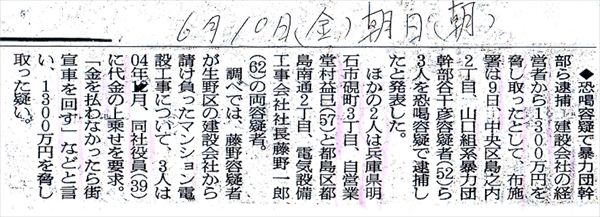 6月10日(金)朝日(朝)
◆恐喝容疑で暴力団幹
部ら逮捕 建設会社の経
営者から1300万円を
脅し取ったとして、布施
署は9日、中央区島之内
2丁目、山口組系暴力団
幹部谷干彦容疑者(52)ら
3人を恐喝容疑で逮捕し
たと発表した。
ほかの2人は兵庫県明
石市硯町3丁目、自営業
堂村益巳(57)と都島区都
島南通2丁目、電気設備
工事会社社長藤野一郎
(62)の両容疑者。
調べでは、藤野容疑者
が生野区の建設会社から
請け負ったマンション電
設工事について、3人は
04年12月、同社役員(39)
に代金の上乗せを要求。
「金を払わなかったら街
宣車を回す」などと言
い、1300万円を脅し
取った疑い。